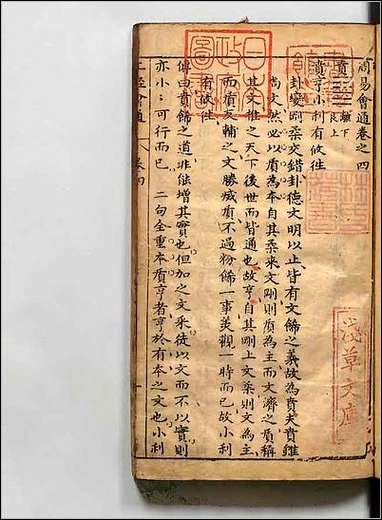 周易會通卷之四
賁 離下 艮上
賁亨小利有攸徃
卦變剛柔交錯卦德文明以止皆有文飾之義故為賁夫賁雖
尚文然必以質為本自其柔來文剛則質為主而文濟之質稱
其文推之天下後世而皆通也故亨自其剛上文柔則文為主
而質反輔之文勝咸質不過粉飾一事美觀一時而已故小利
有攸徃
傳曰賁飾之道非能增其實也但加之文采徒以文而不以實則
亦小小可行而已 二句全重本質亨者亨於有本之文也小利
易經會通 卷四
日本政府圖書
淺草文庫
林氏藏書